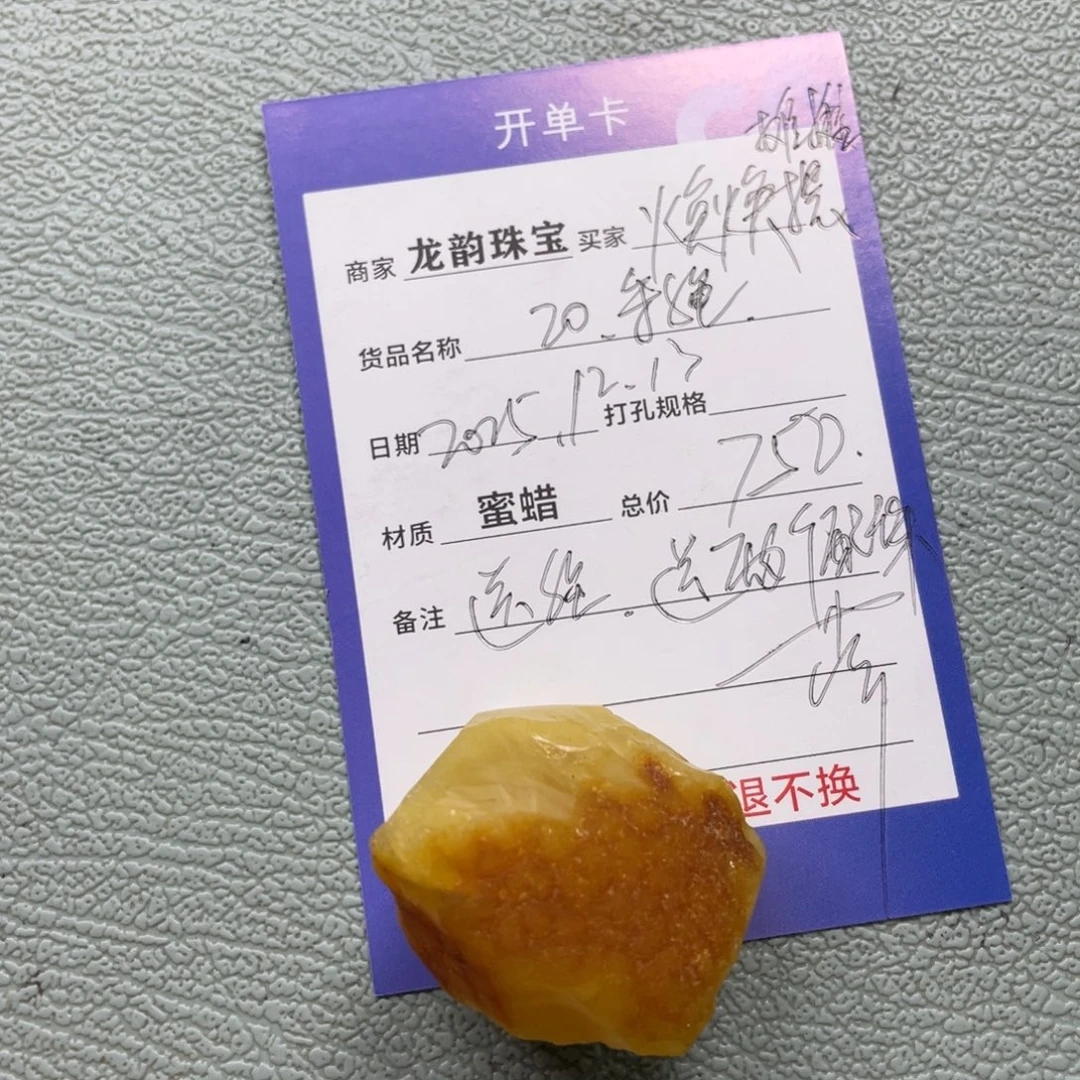 开单卡
商家 龙韵珠宝 买家
货品名称 20.手绳.
日期 2025.12.13 打孔规格
材质 蜜蜡 总价 750.
备注 送绳.送两个配珠
退不换